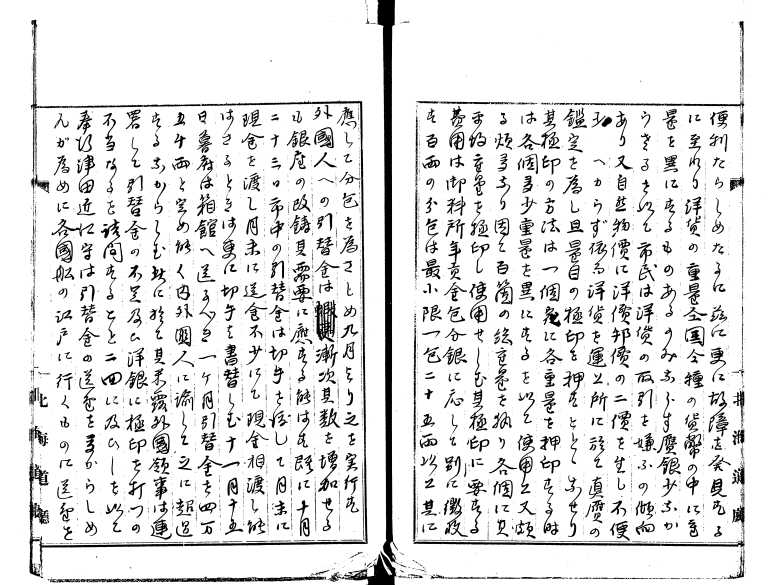 便利たらしめたるに茲に更に故障を発見せる
に至れり洋貨の重量全国全種の貨幣の中にて
量を異にするものあるのみならず贋銀少なか
らざるを以て市民は洋貨の取引を嫌ふの傾向
あり又自然物價に洋價邦價の二價を生し不便
へからず依る洋貨を運上所に於て真贋の
鑑定を為し且量目の極印を押すことゝなせり
其極印の方法は一個毎に各重量を押印するは
は各個多少重量を異にするを以て使用上又頗
る煩多なり因て百箇の総重量を執り各個に其
平均重量を極印し使用せしむ其極印に要する
費用は御料所年貢金包分銀に応して別に徴収
す百両の分包は最小限一包二十五両以上其に
應して分包を為さしめ九月より之を実行す
外國人への引替金は漸次其数を増加せる
も銀座の改鋳其需要に應する能はす既に十月
二十三日市中の引替金は切手を渡して月末に
現金を渡し月末に送金不少にて現金相渡し能
はさるときは更に切手を書替しむ十一月十五
日幕府は箱館へ送るへき一ヶ月引替金を四万
五千両と定め能く内外國人に諭して之に超過
するなからしむ此に於て其来露外國領事は連
署して引替金の不足及ひ洋銀に極印を打つの
不当なるを詰問すること二回に及ひしを以て
奉行津田近江守は引替金の送達をまからしめ
んが為めに各國船の江戸に行くものに送達を
北海道廳
北海道廳